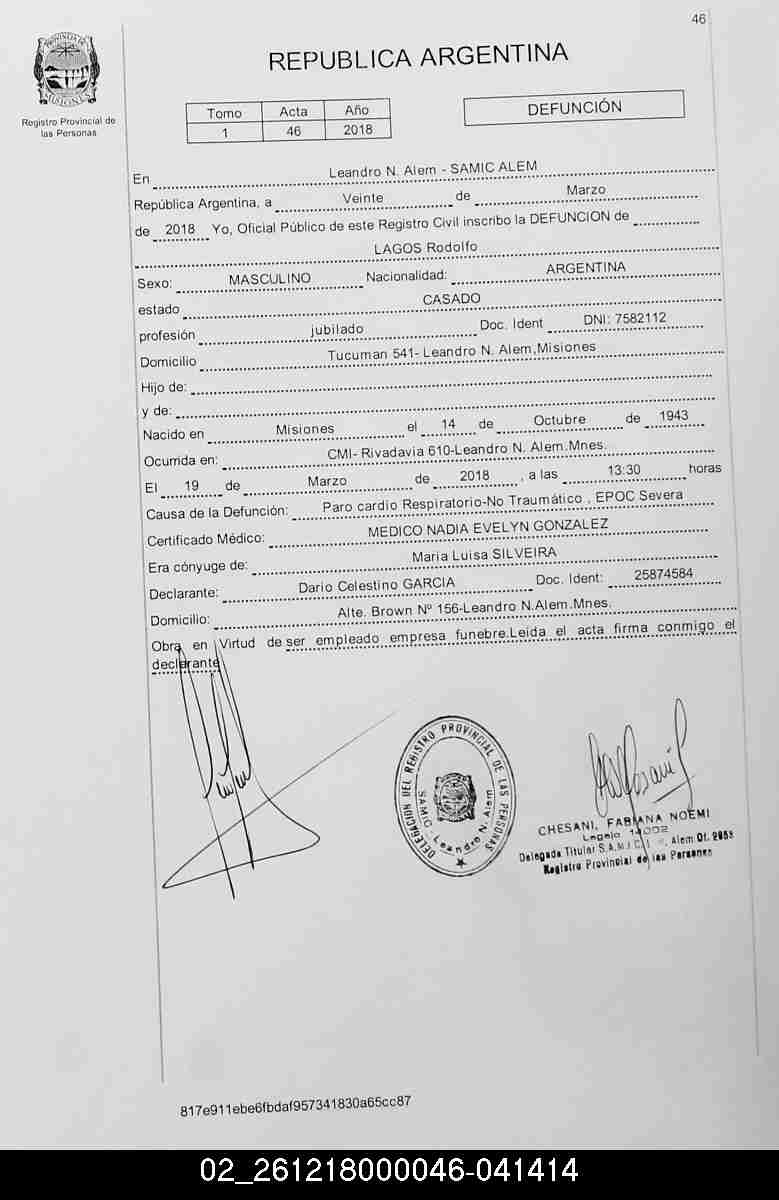 46
PROVINCIA DE
MISIONES
Registro Provincial de
las Personas
REPUBLICA ARGENTINA
Tomo Acta Año
1 46 2018
DEFUNCIÓN
En Leandro N. Alem - SAMIC ALEM
República Argentina, a Veinte de Marzo
de 2018 Yo, Oficial Público de este Registro Civil inscribo la DEFUNCION de
LAGOS Rodolfo
Sexo: MASCULINO Nacionalidad: ARGENTINA
estado CASADO
profesión jubilado Doc. Ident DNI: 7582112
Domicilio Tucuman 541- Leandro N. Alem,Misiones
Hijo de:
y de:
Nacido en Misiones el 14 de Octubre de 1943
Ocurrida en: CMI- Rivadavia 610-Leandro N. Alem.Mnes.
El 19 de Marzo de 2018 , a las 13:30 horas
Causa de la Defunción: Paro cardio Respiratorio-No Traumático , EPOC Severa
Certificado Médico: MEDICO NADIA EVELYN GONZALEZ
Era cónyuge de: Maria Luisa SILVEIRA
Declarante: Dario Celestino GARCIA Doc. Ident: 25874584
Domicilio: Alte. Brown Nº 156-Leandro N.Alem.Mnes.
Obra en Virtud de ser empleado empresa funebre.Leida el acta firma conmigo el
declarante
DELEGACION DEL REGISTRO PROVINCIAL DE LAS PERSONAS
SAMIC - Leandro N. Alem
CHESANI, FABIANA NOEMI
Legajo 14002
Delegada Titular S.A.M.I.C. Alem Of. 2053
Registro Provincial de las Personas
817e911ebe6fbdaf957341830a65cc87
02_261218000046-041414